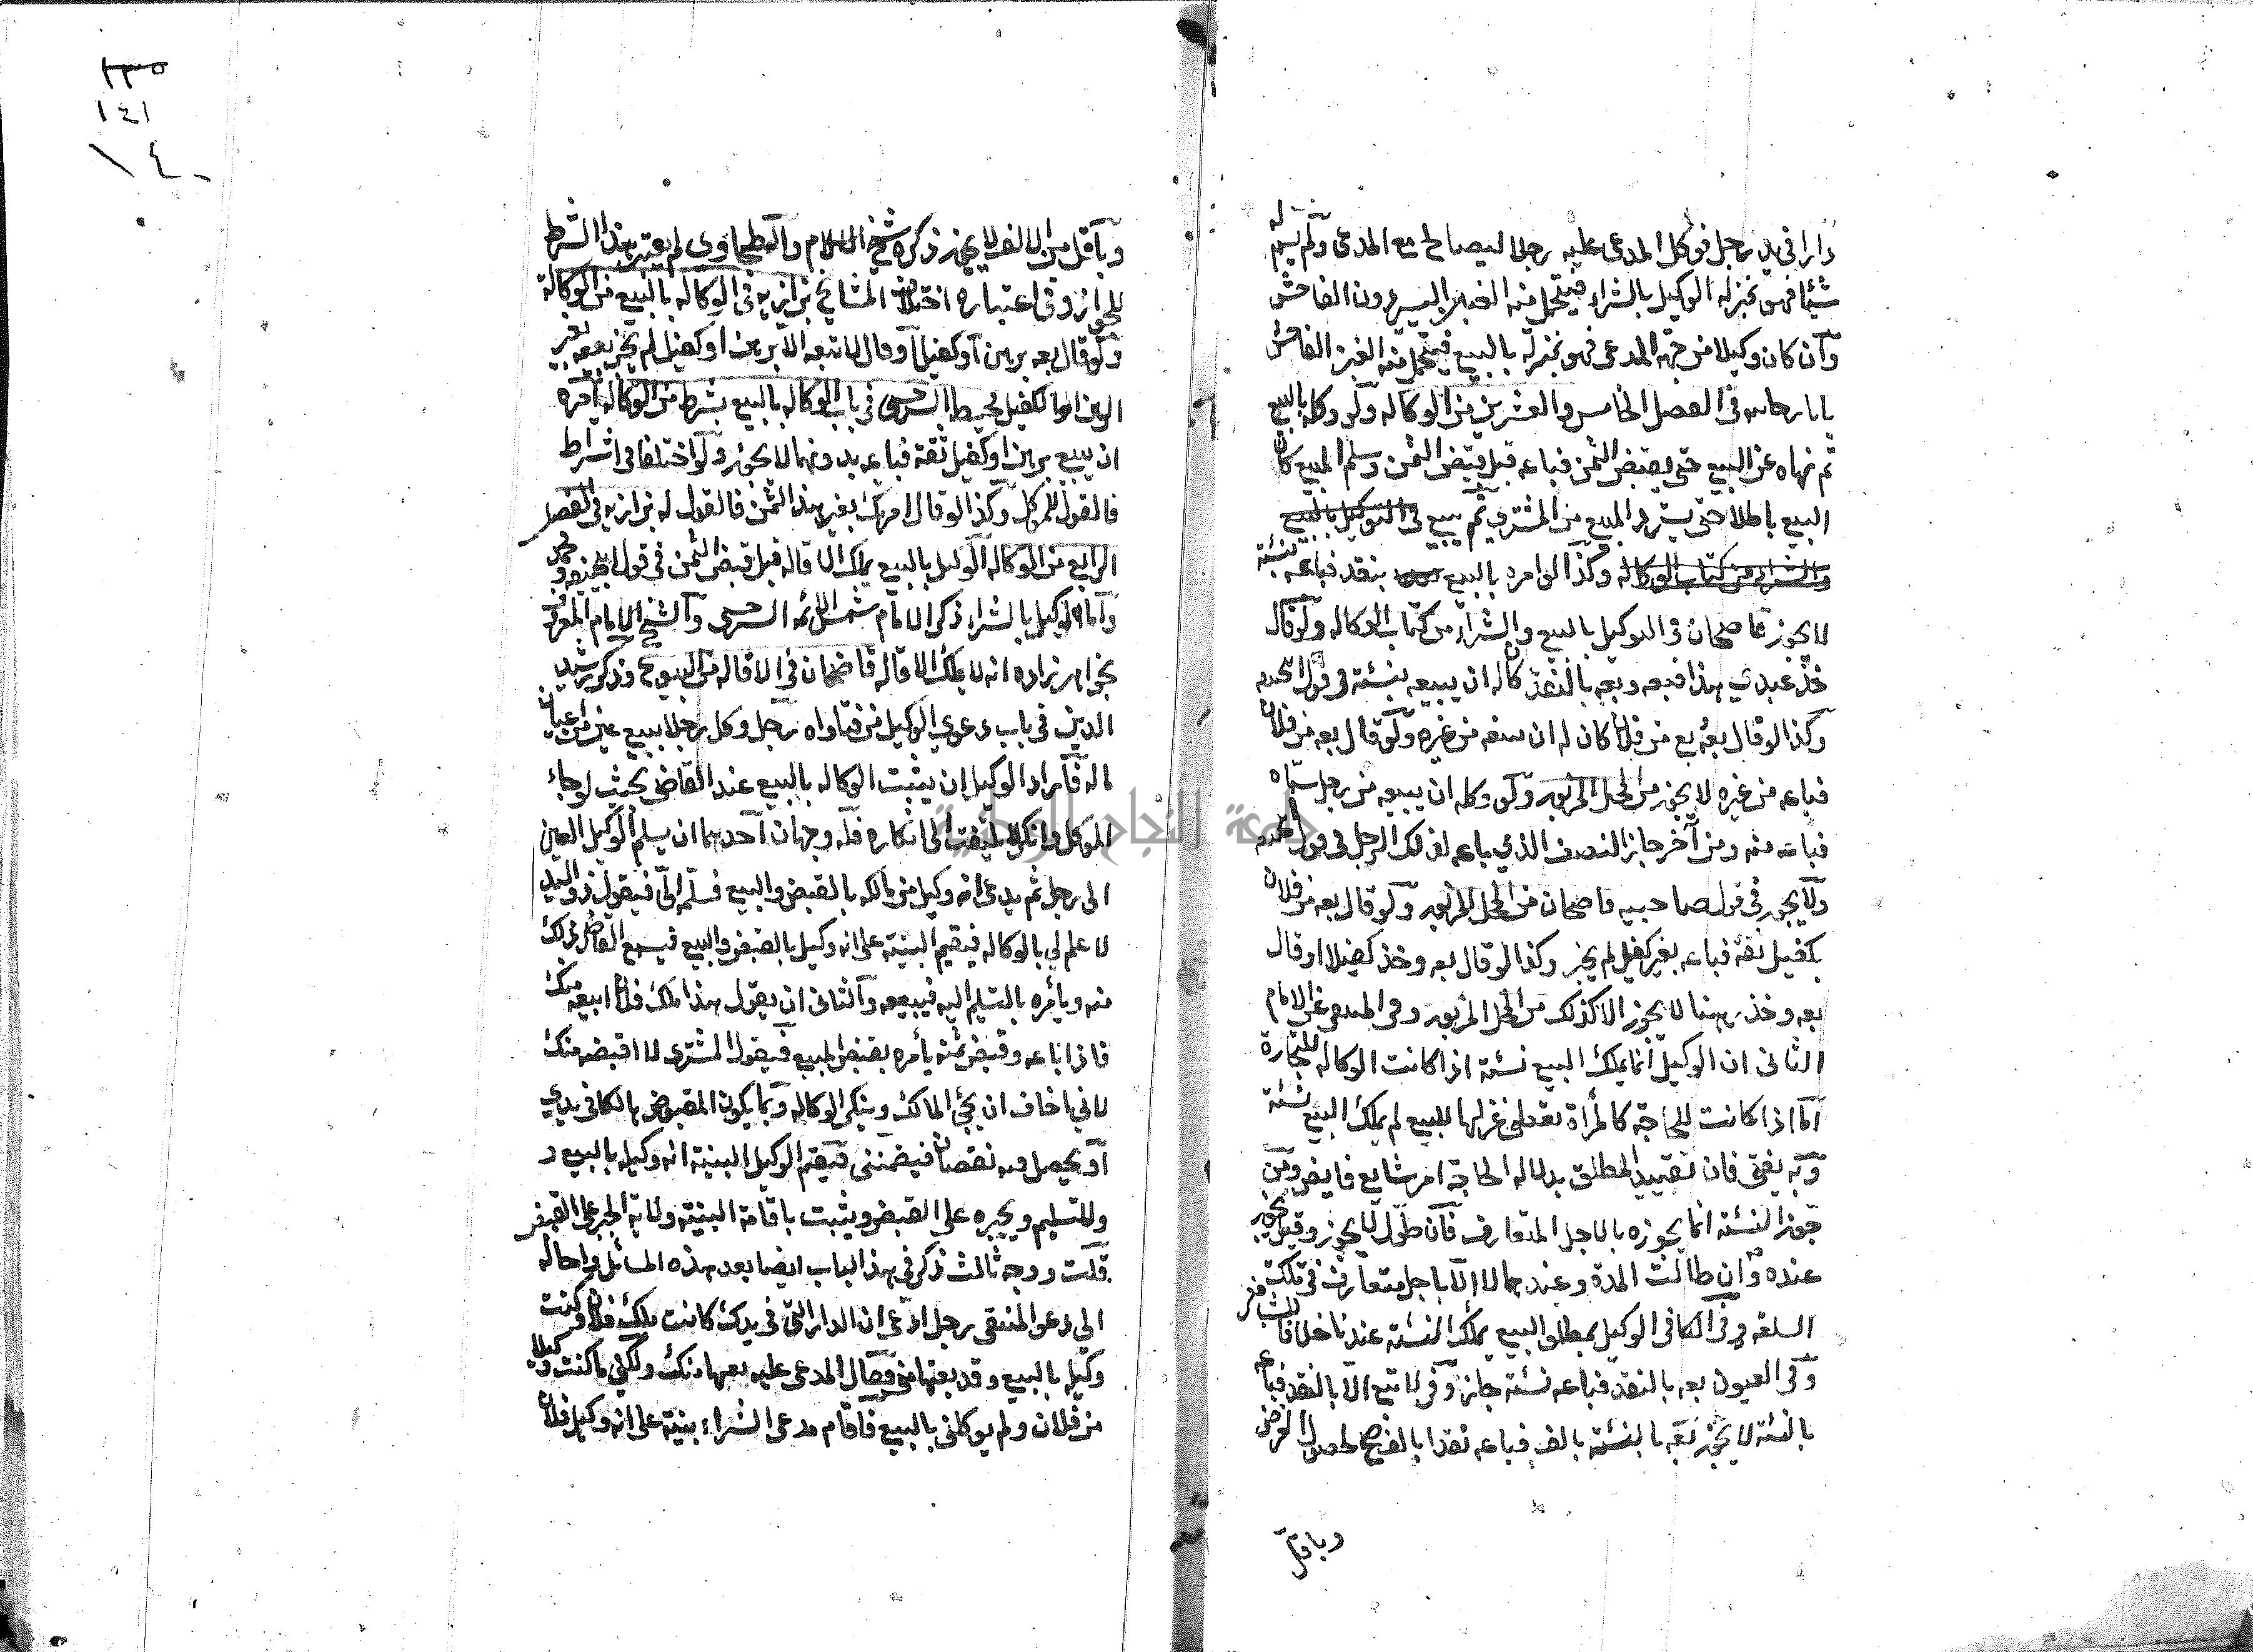 دارا في يد رجل فوكل المدعى عليه رجلا ليصالح مع المدعي ولم يسم له
شيئا فهو بمنزلة الوكيل بالشراء فيتحمل منه الغبن اليسير دون الفاحش
وان كان وكيلا من جهة المدعي فهو بمنزلة بالبيع فيتحمل منه الغبن الفاحش
في الفصل الخامس والعشرين من الوكاله ولو وكله بالبيع
ثم نهاه عن البيع حتى يقبض الثمن فباعه قبل قبض الثمن وسلم المبيع كان
البيع باطلا حتى يسترد المبيع من المشتري ثم يبيع في التوكيل بالبيع
والشراء من كتاب الوكاله وكذا لو امره بالبيع بنقد فباعه بنسئة
لا يجوز قاضخان في التوكيل بالبيع والشراء من كتاب الوكاله ولو قال
خذ عبدي هذا فبعه وبعه بالنقد كان له ان يبيعه بنسئة في قول
وكذا لو قال بعه بع من فلان كان له ان يبيعه من غيره ولو قال بعه من فلان
فباعه من غيره لا يجوز من المحل المزبور ولو وكله ان يبيعه من رجل سماه
فباعه منه ومن آخر جاز النصف الذي باعه لذلك الرجل في قول
ولا يجوز في قول صاحبيه قاضخان من المحل المزبور ولو قال بعه من فلان
بكفيل ثقه فباعه بغير كفيل لم يجز وكذا لو قال بعه وخذ كفيلا او قال
بعه وخذ رهنا لا يجوز الا كذلك من المحل المزبور وفي المنتقى عن الامام
الثاني ان الوكيل انما يملك البيع نسئة اذا كانت الوكاله للتجارة
اما اذا كانت للحاجة كالمرأة تعطي غزلها للبيع لم يملك البيع نسئة
وبه يفتى فان تقييد المطلق بدلالة الحاجة امر شايع فايض ومن
جوز النسئة انما يجوزه بالاجل المتعارف فان طول لا يجوز وقيل يجوز
عنده وان طالت المدة وعندهما لا الا باجل متعارف في تلك
السلعه وفي الكافي الوكيل بمطلق البيع يملك النسئة عندنا خلافا للشافعي
وفي العيون بعه بالنقد فباعه نسئة جاز وفي لا تبع الا بالنقد فباعه
بالنسئة لا يجوز بعه بالنسئة بالف فباعه نقدا بالف صح لحصول الغرض
وباقل
٢٣٥
١٤١
١٤٠
وباقل من الالف لا يجوز ذكره شيخ الاسلام والطحاوي لم يعتبر هذا الشرط
للجواز وفي اعتباره اختلاف المشايخ بزازيه في الوكاله بالبيع من الوكالة
ولو قال بعه برهن او كفيل او قال لا تبعه الا برهن او كفيل لم يجز بيعه بغير
الرهن او الكفيل محيط السرخسي في باب الوكاله بالبيع بشرط من الوكاله امره
ان يبيع برهن او كفيل ثقة فباعه بدونهما لا يجوز ولو اختلفا في اشتراط
فالقول للموكل وكذا لو قال امرتك بغير هذا الثمن فالقول له بزازيه في الفصل
الرابع من الوكاله الوكيل بالبيع يملك الاقاله قبل قبض الثمن في قول ابي حنيفة ومحمد
واما الوكيل بالشراء ذكر الامام شمس الائمه السرخسي والشيخ الامام المعروف
بخواهر زاده انه لا يملك الاقاله قاضخان في الاقاله من البيوع وذكر رشيد
الدين في باب دعوى الوكيل من فتاواه رجل وكل رجلا ببيع عين من اعيان
ماله فاراد الوكيل ان يثبت الوكاله بالبيع عند القاضي بحيث لو جاء
الموكل وانكر لا يلتفت الى انكاره فله وجهان احدهما ان يسلم الوكيل العين
الى رجل ثم يدعي انه وكيل من مالكه بالقبض والبيع فسلمه الي فيقول ذو اليد
لا علم لي بالوكاله فيقيم البينة على انه وكيل بالقبض والبيع فيسمع القاضي ذلك
منه ويأمره بالتسليم اليه فيبيعه والثاني ان يقول هذا ملك فلان ابيعه منك
فاذا باعه وقبض ثمنه يأمره بقبض المبيع فيقول المشتري لا اقبضه منك
لاني اخاف ان يجئ المالك وينكر الوكاله وربما يكون المقبوض هالكا في يدي
او يحصل فيه نقصان فيضمنني فيقيم الوكيل البينة انه وكيله بالبيع و
وللتسليم ويجبره على القبض ويثبت باقامة البينة ولاية الجبر على القبض
قلت ووجه ثالث ذكر في هذا الباب ايضا بعد هذه المسائل واحاله
الى دعوى المنتقى رجل ادعى ان الدار التي في يدك كانت ملك فلان وكنت
وكيله بالبيع وقد بعتها مني فقال المدعى عليه بعتها منك ولكني ما كنت وكيلا
من فلان ولم يوكلني بالبيع فاقام مدعي الشراء بينة على انه وكيل فلان
جامعة النجاح الوطنية